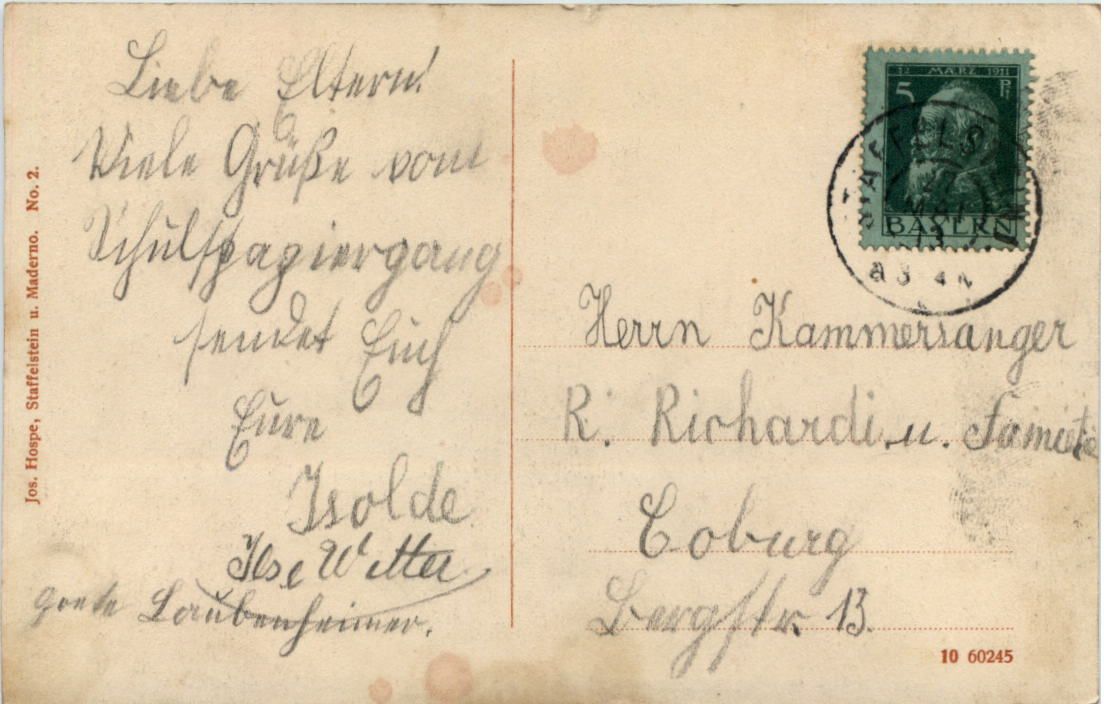 Liebe Eltern!
Viele Grüße vom
Schulspaziergang
sendet Euch
Eure
Isolde
Ilse Witter
Grete Laubenheimer.
Jos. Hospe, Staffelstein u. Maderno. No. 2.
12 MÄRZ 1911
5 Pf
BAYERN
STAFFELS
Herrn Kammersanger
R. Richardi u. Familie
Coburg
Bergstr. 13.
10 60245